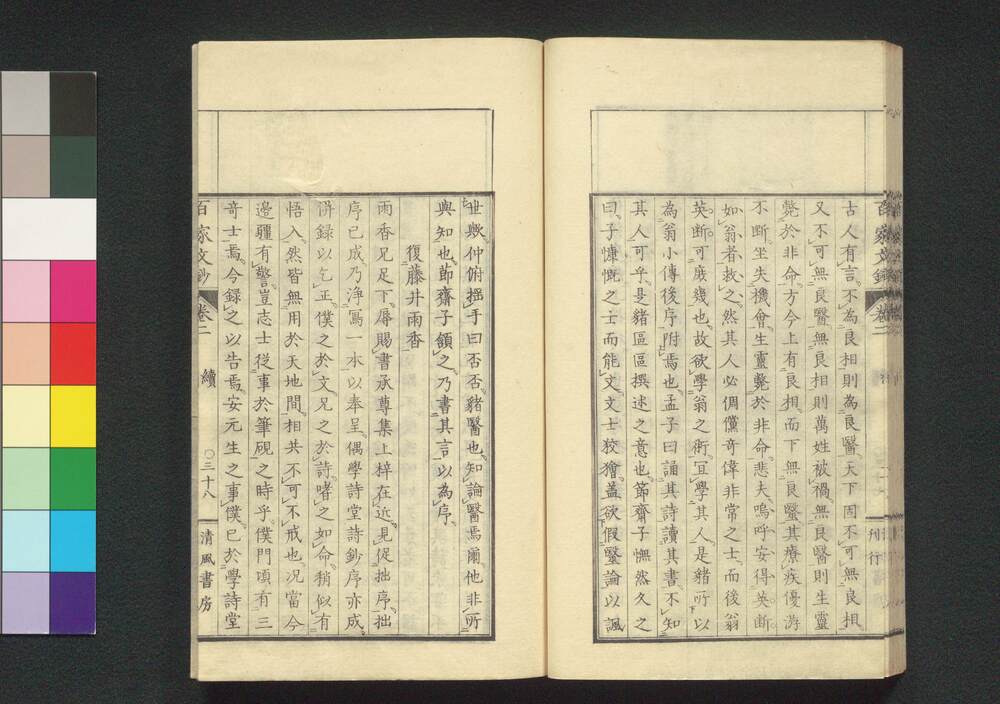 古人有言。不為良相則為良醫。天下固不可無良相。
又不可無良醫。無良相則萬姓被禍。無良醫則生靈
斃於非命。方今上有良相。而下無良醫。其療疾優游
不断。坐失機會。生靈斃於非命。悲夫。嗚呼。安得英断
如翁者。故之。然其人必倜儻奇偉非常之士。而後翁
英断。可庶幾也。故欲學翁之術。宜學其人。是豬所以
為翁小傳後序附焉也。孟子曰。誦其詩讀其書。不知
其人可乎。是豬區區撰述之意也。節齋子憮然久之
曰。子慷慨之士而能文。文士狡獪。蓋欲假醫論以諷
百家文鈔 卷二 刊行
世歟。仲俯摇手曰。否否。豬醫也。知論醫焉爾。他非所
與知也。節齋子頷之。乃書其言以為序。
復藤井雨香
雨香兄足下。辱賜書承尊集上梓在近。見促拙序。拙
序已成。乃淨寫一本以奉呈。偶學詩堂詩鈔序亦成。
併録以乞正。僕之於文。兄之於詩。嗜之如命。稍似有
悟入。然皆無用於天地間。相共不可不戒也。况當今
邊疆有警。豈志士從事於筆硯之時乎。僕門頃有三
奇士焉。今録之以告焉。安元生之事。僕已於學詩堂
百家文鈔 卷二 續 〇三十八 清風書房